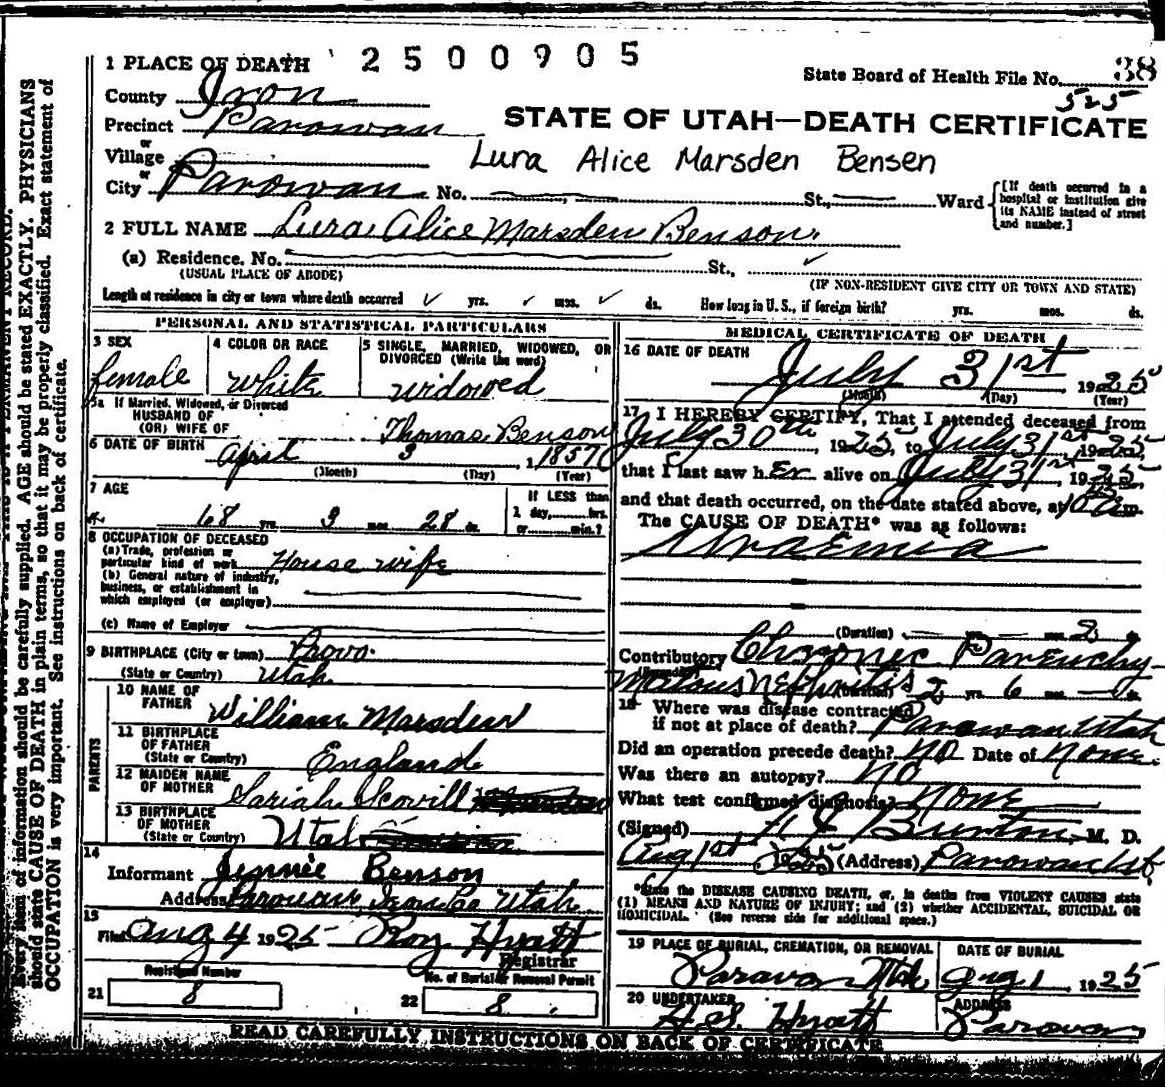 1 PLACE OF DEATH
2500905
State Board of Health File No. 38
525
County Iron
Precinct Parowan
STATE OF UTAH—DEATH CERTIFICATE
or
Village
Lura Alice Marsden Bensen
or
City Parowan No. St., Ward
[If death occurred in a hospital or institution give its NAME instead of street and number.]
2 FULL NAME Lura Alice Marsden Benson
(a) Residence. No. St.,
(USUAL PLACE OF ABODE)
(IF NON-RESIDENT GIVE CITY OR TOWN AND STATE)
Length of residence in city or town where death occurred yrs. mos. ds. How long in U. S., if foreign birth? yrs. mos. ds.
PERSONAL AND STATISTICAL PARTICULARS
3 SEX
female
4 COLOR OR RACE
White
5 SINGLE, MARRIED, WIDOWED, OR DIVORCED (Write the word)
widowed
5a If Married, Widowed, or Divorced
HUSBAND OF
(OR) WIFE OF Thomas Benson
6 DATE OF BIRTH April 3 1857
(Month) (Day) (Year)
7 AGE
68 yrs. 3 mos. 28 ds.
If LESS than
1 day, hrs.
or min.?
8 OCCUPATION OF DECEASED
(a) Trade, profession or
particular kind of work House wife
(b) General nature of industry,
business, or establishment in
which employed (or employer)
(c) Name of Employer
9 BIRTHPLACE (City or town) Provo
(State or Country) Utah
PARENTS
10 NAME OF
FATHER William Marsden
11 BIRTHPLACE
OF FATHER
(State or Country) England
12 MAIDEN NAME
OF MOTHER Sariah Scovill
13 BIRTHPLACE
OF MOTHER
(State or Country) Utah
14
Informant Jennie Benson
Address Parowan Iron Co Utah
15
Filed Aug 4 1925 Roy Hyatt
Registrar
Registered Number
21 8
No. of Burial or Removal Permit
22 8
MEDICAL CERTIFICATE OF DEATH
16 DATE OF DEATH
July 31st 1925
(Month) (Day) (Year)
17 I HEREBY CERTIFY, That I attended deceased from
July 30th, 1925, to July 31st, 1925,
that I last saw her alive on July 31st, 1925,
and that death occurred, on the date stated above, at 10 am.
The CAUSE OF DEATH* was as follows:
Uraemia
(Duration) yrs. mos. 2 ds.
Contributory Chronic Parenchy
matous Nephritis 2 yrs. 6 mos. ds.
18 Where was disease contracted
if not at place of death? Parowan Utah
Did an operation precede death? NO Date of None
Was there an autopsy? NO
What test confirmed diagnosis? None
(Signed) Burton, M. D.
Aug 1st 1925 (Address) Parowan Ut
*State the DISEASE CAUSING DEATH, or, in deaths from VIOLENT CAUSES state
(1) MEANS AND NATURE OF INJURY; and (2) whether ACCIDENTAL, SUICIDAL OR
HOMICIDAL. (See reverse side for additional space.)
19 PLACE OF BURIAL, CREMATION, OR REMOVAL
DATE OF BURIAL
Aug 1 1925
20 UNDERTAKER
H.S. Hyatt
ADDRESS
Parowan
READ CAREFULLY INSTRUCTIONS ON BACK OF CERTIFICATE
Every item of information should be carefully supplied. AGE should be stated EXACTLY. PHYSICIANS
should state CAUSE OF DEATH in plain terms, so that it may be properly classified. Exact statement of
OCCUPATION is very important. See instructions on back of certificate.